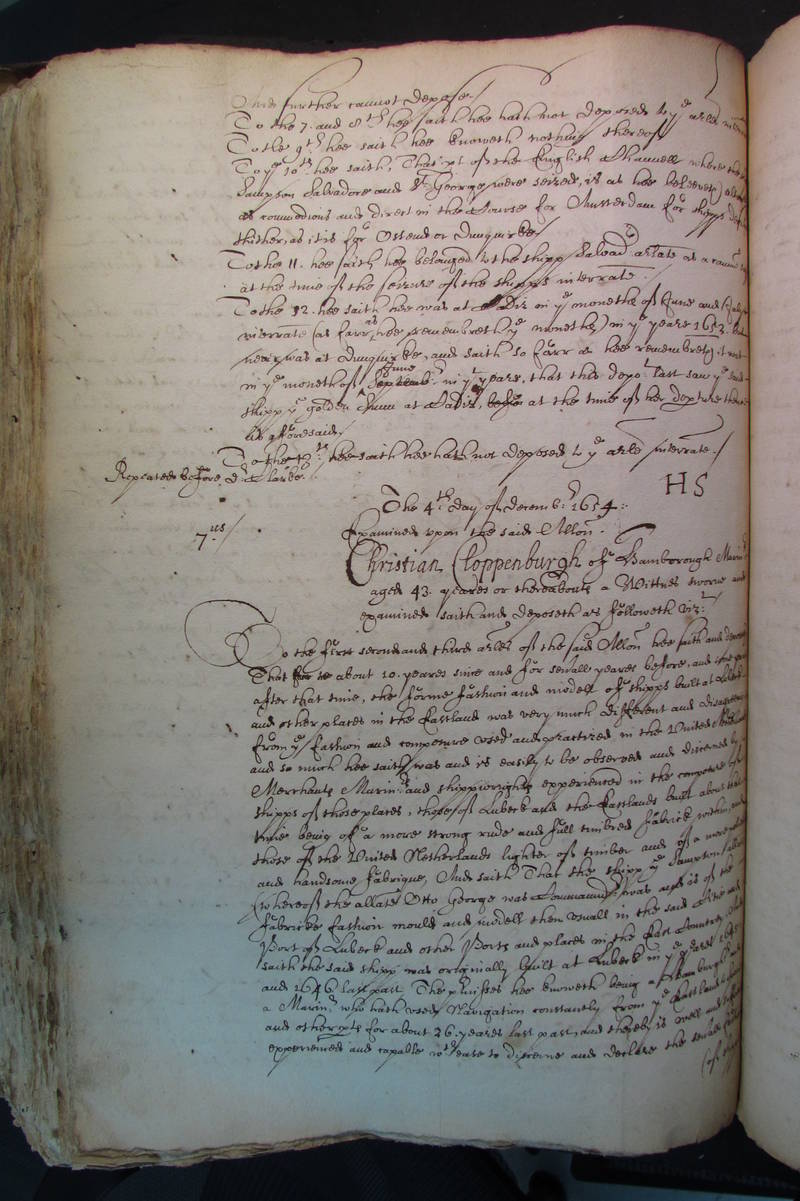 And further cannot depose./
To the 7. and 8th hee saith hee hath not deposed to ye arles
To the 9th hee saith hee knoweth nothing thereof
To ye 10th hee saith, That pt of the English Channell where the
Sampson Salvadore and St. George were seized, is as hee beleeveth
as commodious and direct in the Course for Amsterdam for shipps
thither, as it is for Ostend or Dunquirke
To the 11. hee saith hee belonged to the shipp Salvad. arlate as a
at the time of the seizure of the shipps interrate.
To the 12. hee saith hee was at Cadiz in ye moneths of June and July
interrate (as farr as hee remembreth ye moneths) in ye yeare 1652. but
never was at Dunquirke, and saith so farr as hee remembreth it was
in ye moneth of June in ye yeare, that this depot last saw ye said
shipp ye golden Sunn at Cadiz, at the time of her depture thence
as aforesaid./
To the 13th hee saith hee hath not deposed to ye arle interrate./
Repeated before Dr. Clarke.
HS
The 4th day of decemb: 1654.
Examined upon the said Allon.
7us/
Christian Cloppenburgh of Hamborough Marinr
aged 43. yeares or thereabouts a Wittnes sworne and
examined saith and deposeth as followeth vizt
To the first second and third arles of the said Allon hee saith and deposeth
That for about 10. yeares since and for severall yeares before, and
after that time, the forme fashion and modell of shipps built at Lubeck
and other places in the Eastland was very much different and disagreeing
from ye fashion and composure used and practized in the United
and so much hee saith was and is easily to be observed and discerned by
Merchants Marinrs and shippwrights experienced in the composure of
shipps of those places, those of Lubeck and the Eastlands built about that
time being of a more strong rude and full timbred fabrick, and
those of the United Netherlands lighter of timber and of a more
and handsome fabrique, And saith That the shipp ye Sampson
(whereof the allate Otto George was Commander) was and is of the
fabricke fashion mould and modell then usuall in the said
Port of Lubeck and other Ports and places in the East Country, And
saith the said shipp was originally built at Lubeck in ye yeares 1645
and 1646 last past. The pmisses hee knoweth being a Hamburgher
a Marinr who hath used Navigation constantly from ye Eastland
and other pts for about 26. yeares last past, and thereby is well and
experienced and capable wth ease to discerne and declare the severall
(of